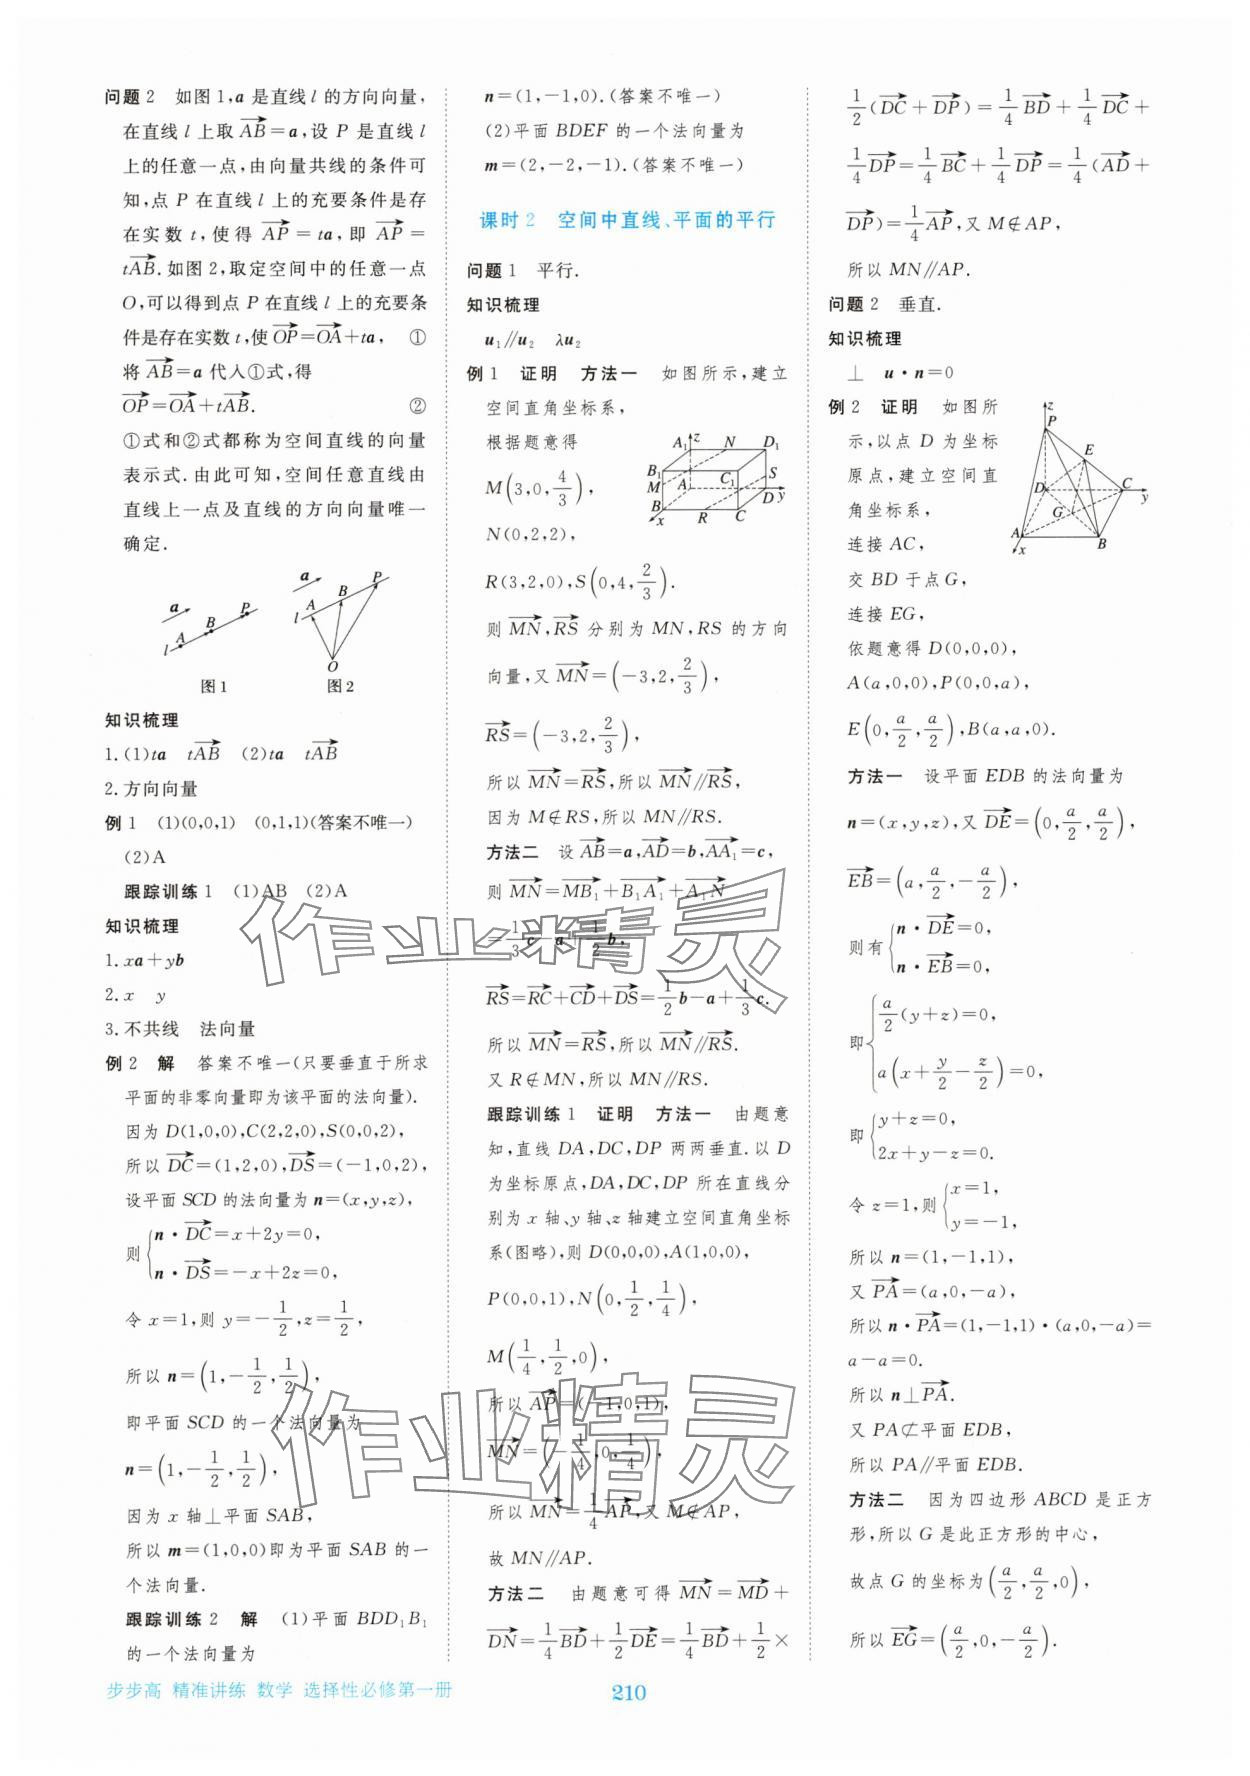 问题2 如图1,a 是直线 l 的方向向量,
在直线 l 上取 $\overrightarrow{AB}$=a,设 P 是直线 l
上的任意一点,由向量共线的条件可
知,点 P 在直线 l 上的充要条件是存
在实数 t,使得 $\overrightarrow{AP}$=ta,即 $\overrightarrow{AP}$=
t$\overrightarrow{AB}$.如图2,取定空间中的任意一点
O,可以得到点 P 在直线 l 上的充要条
件是存在实数 t,使 $\overrightarrow{OP}$=$\overrightarrow{OA}$+ta, ①
将 $\overrightarrow{AB}$=a 代入①式,得
$\overrightarrow{OP}$=$\overrightarrow{OA}$+t$\overrightarrow{AB}$. ②
①式和②式都称为空间直线的向量
表示式.由此可知,空间任意直线由
直线上一点及直线的方向向量唯一
确定.
a l A B P
图1
a l A B P O
图2
知识梳理
1.(1)ta t$\overrightarrow{AB}$ (2)ta t$\overrightarrow{AB}$
2.方向向量
例1 (1)(0,0,1) (0,1,1)(答案不唯一)
(2)A
跟踪训练1 (1)AB (2)A
知识梳理
1.xa+yb
2.x y
3.不共线 法向量
例2 解 答案不唯一(只要垂直于所求
平面的非零向量即为该平面的法向量).
因为 D(1,0,0),C(2,2,0),S(0,0,2),
所以 $\overrightarrow{DC}$=(1,2,0),$\overrightarrow{DS}$=(-1,0,2),
设平面 SCD 的法向量为 n=(x,y,z),
则 { n·$\overrightarrow{DC}$=x+2y=0,
n·$\overrightarrow{DS}$=-x+2z=0,
令 x=1,则 y=-$\frac{1}{2}$,z=$\frac{1}{2}$,
所以 n=(1,-$\frac{1}{2}$,$\frac{1}{2}$),
即平面 SCD 的一个法向量为
n=(1,-$\frac{1}{2}$,$\frac{1}{2}$),
因为 x 轴⊥平面 SAB,
所以 m=(1,0,0)即为平面 SAB 的一
个法向量.
跟踪训练2 解 (1)平面 BDD₁B₁
的一个法向量为
n=(1,-1,0).(答案不唯一)
(2)平面 BDEF 的一个法向量为
m=(2,-2,-1).(答案不唯一)
课时2 空间中直线、平面的平行
问题1 平行.
知识梳理
u₁∥u₂ λu₂
例1 证明 方法一 如图所示,建立
空间直角坐标系,
根据题意得
M(3,0,$\frac{4}{3}$),
N(0,2,2),
A₁ z N D₁ B₁ M A C₁ S D y B x R C
R(3,2,0),S(0,4,$\frac{2}{3}$).
则 $\overrightarrow{MN}$,$\overrightarrow{RS}$ 分别为 MN,RS 的方向
向量,又 $\overrightarrow{MN}$=(-3,2,$\frac{2}{3}$),
$\overrightarrow{RS}$=(-3,2,$\frac{2}{3}$),
所以 $\overrightarrow{MN}$=$\overrightarrow{RS}$,所以 $\overrightarrow{MN}$∥$\overrightarrow{RS}$,
因为 M∉RS,所以 MN∥RS.
方法二 设 $\overrightarrow{AB}$=a,$\overrightarrow{AD}$=b,$\overrightarrow{AA₁}$=c,
则 $\overrightarrow{MN}$=$\overrightarrow{MB₁}$+$\overrightarrow{B₁A₁}$+$\overrightarrow{A₁N}$
=$\frac{1}{3}$c a $\frac{1}{2}$b,
$\overrightarrow{RS}$=$\overrightarrow{RC}$+$\overrightarrow{CD}$+$\overrightarrow{DS}$=$\frac{1}{2}$b-a+$\frac{1}{3}$c.
所以 $\overrightarrow{MN}$=$\overrightarrow{RS}$,所以 $\overrightarrow{MN}$∥$\overrightarrow{RS}$.
又 R∉MN,所以 MN∥RS.
跟踪训练1 证明 方法一 由题意
知,直线 DA,DC,DP 两两垂直.以 D
为坐标原点,DA,DC,DP 所在直线分
别为 x 轴、y 轴、z 轴建立空间直角坐标
系(图略),则 D(0,0,0),A(1,0,0),
P(0,0,1),N(0,$\frac{1}{2}$,$\frac{1}{4}$),
M($\frac{1}{4}$,$\frac{1}{2}$,0),
所以 $\overrightarrow{AP}$=(-1,0,1),
$\overrightarrow{MN}$=(-$\frac{1}{4}$,0,$\frac{1}{4}$),
所以 $\overrightarrow{MN}$=$\frac{1}{4}$$\overrightarrow{AP}$,又 M∉AP,
故 MN∥AP.
方法二 由题意可得 $\overrightarrow{MN}$=$\overrightarrow{MD}$+
$\overrightarrow{DN}$=$\frac{1}{4}$$\overrightarrow{BD}$+$\frac{1}{2}$$\overrightarrow{DE}$=$\frac{1}{4}$$\overrightarrow{BD}$+$\frac{1}{2}$×
$\frac{1}{2}$($\overrightarrow{DC}$+$\overrightarrow{DP}$)=$\frac{1}{4}$$\overrightarrow{BD}$+$\frac{1}{4}$$\overrightarrow{DC}$+
$\frac{1}{4}$$\overrightarrow{DP}$=$\frac{1}{4}$$\overrightarrow{BC}$+$\frac{1}{4}$$\overrightarrow{DP}$=$\frac{1}{4}$($\overrightarrow{AD}$+
$\overrightarrow{DP}$)=$\frac{1}{4}$$\overrightarrow{AP}$,又 M∉AP,
所以 MN∥AP.
问题2 垂直.
知识梳理
⊥ u·n=0
例2 证明 如图所
示,以点 D 为坐标
原点,建立空间直
角坐标系,
连接 AC,
交 BD 于点 G,
连接 EG,
z P E D C y G A x B
依题意得 D(0,0,0),
A(a,0,0),P(0,0,a),
E(0,$\frac{a}{2}$,$\frac{a}{2}$),B(a,a,0).
方法一 设平面 EDB 的法向量为
n=(x,y,z),又 $\overrightarrow{DE}$=(0,$\frac{a}{2}$,$\frac{a}{2}$),
$\overrightarrow{EB}$=(a,$\frac{a}{2}$,-$\frac{a}{2}$),
则有 { n·$\overrightarrow{DE}$=0,
n·$\overrightarrow{EB}$=0,
即 { $\frac{a}{2}$(y+z)=0,
a(x+$\frac{y}{2}$-$\frac{z}{2}$)=0,
即 { y+z=0,
2x+y-z=0.
令 z=1,则 { x=1,
y=-1,
所以 n=(1,-1,1),
又 $\overrightarrow{PA}$=(a,0,-a),
所以 n·$\overrightarrow{PA}$=(1,-1,1)·(a,0,-a)=
a-a=0.
所以 n⊥$\overrightarrow{PA}$.
又 PA⊄平面 EDB,
所以 PA∥平面 EDB.
方法二 因为四边形 ABCD 是正方
形,所以 G 是此正方形的中心,
故点 G 的坐标为($\frac{a}{2}$,$\frac{a}{2}$,0),
所以 $\overrightarrow{EG}$=($\frac{a}{2}$,0,-$\frac{a}{2}$).
作业精灵
作业精灵
步步高 精准讲练 数学 选择性必修第一册
210